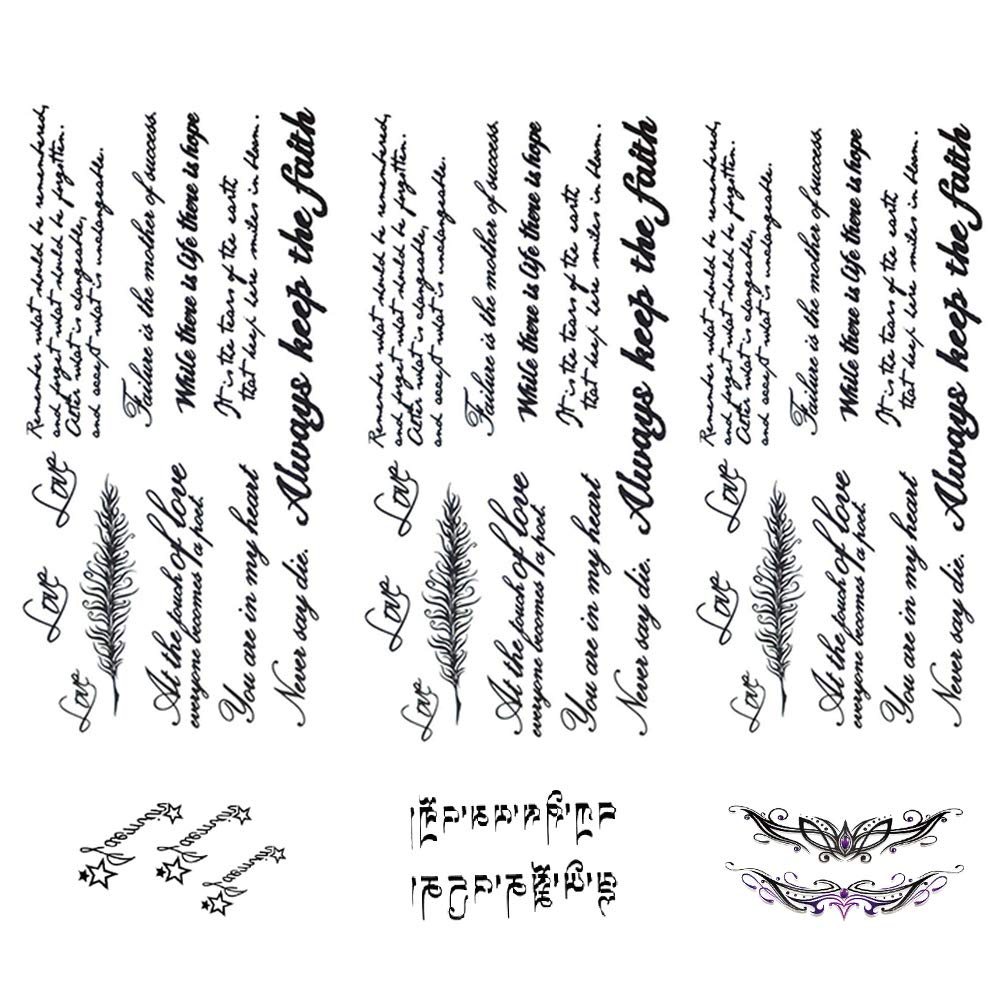 Love Love Love
At the touch of love
everyone becomes a poet.
You are in my heart
Never say die.
Remember what should be remembered,
and forget what should be forgotten.
Alter what is changeable,
and accept what is unchangeable.
Failure is the mother of success.
While there is life there is hope
It is the tears of the earth
that keep here smiles in bloom.
Always keep the faith
Love Love Love
At the touch of love
everyone becomes a poet.
You are in my heart
Never say die.
Remember what should be remembered,
and forget what should be forgotten.
Alter what is changeable,
and accept what is unchangeable.
Failure is the mother of success.
While there is life there is hope
It is the tears of the earth
that keep here smiles in bloom.
Always keep the faith
Love Love Love
At the touch of love
everyone becomes a poet.
You are in my heart
Never say die.
Remember what should be remembered,
and forget what should be forgotten.
Alter what is changeable,
and accept what is unchangeable.
Failure is the mother of success.
While there is life there is hope
It is the tears of the earth
that keep here smiles in bloom.
Always keep the faith